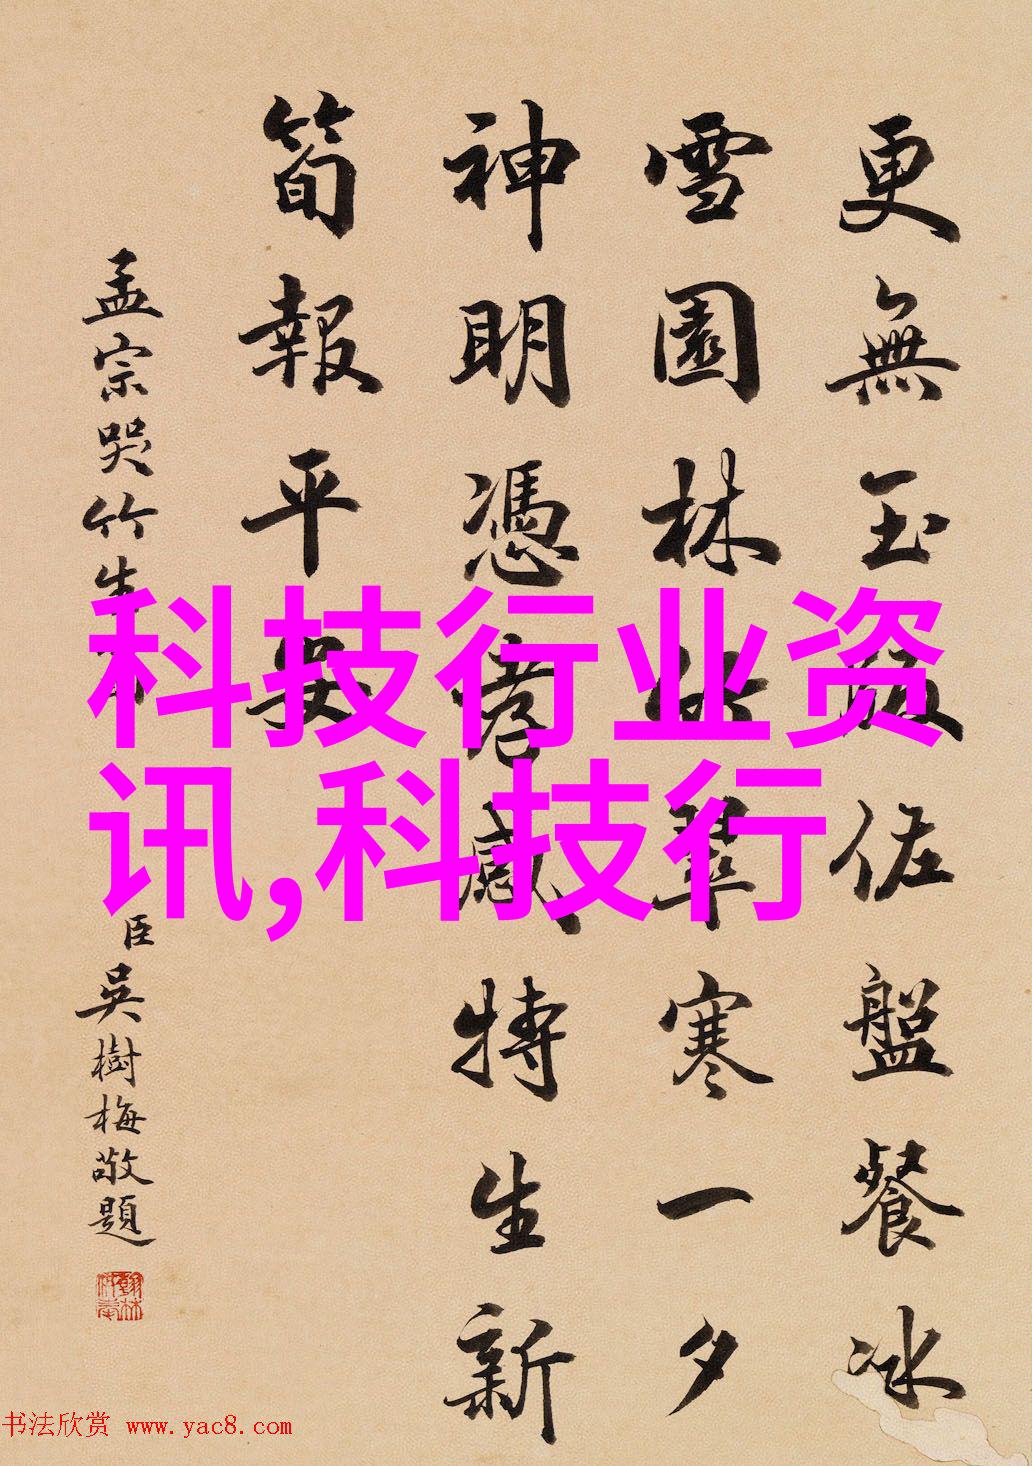 更無玉版佐盤餐冰
雪園林比翠寒一夕
神明憑孝感特生新
筍報平安
孟宗哭竹生
臣吳樹梅敬題
科技行业资
讯,科技行
书法欣赏 www.yac8.com